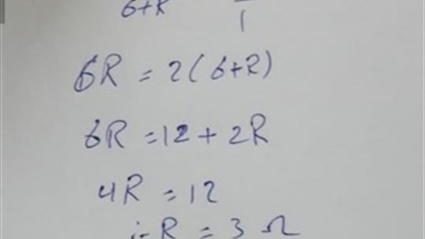 6+R 1
6R = 2(6+R)
6R = 12 + 2R
4R = 12
∴ R = 3 Ω